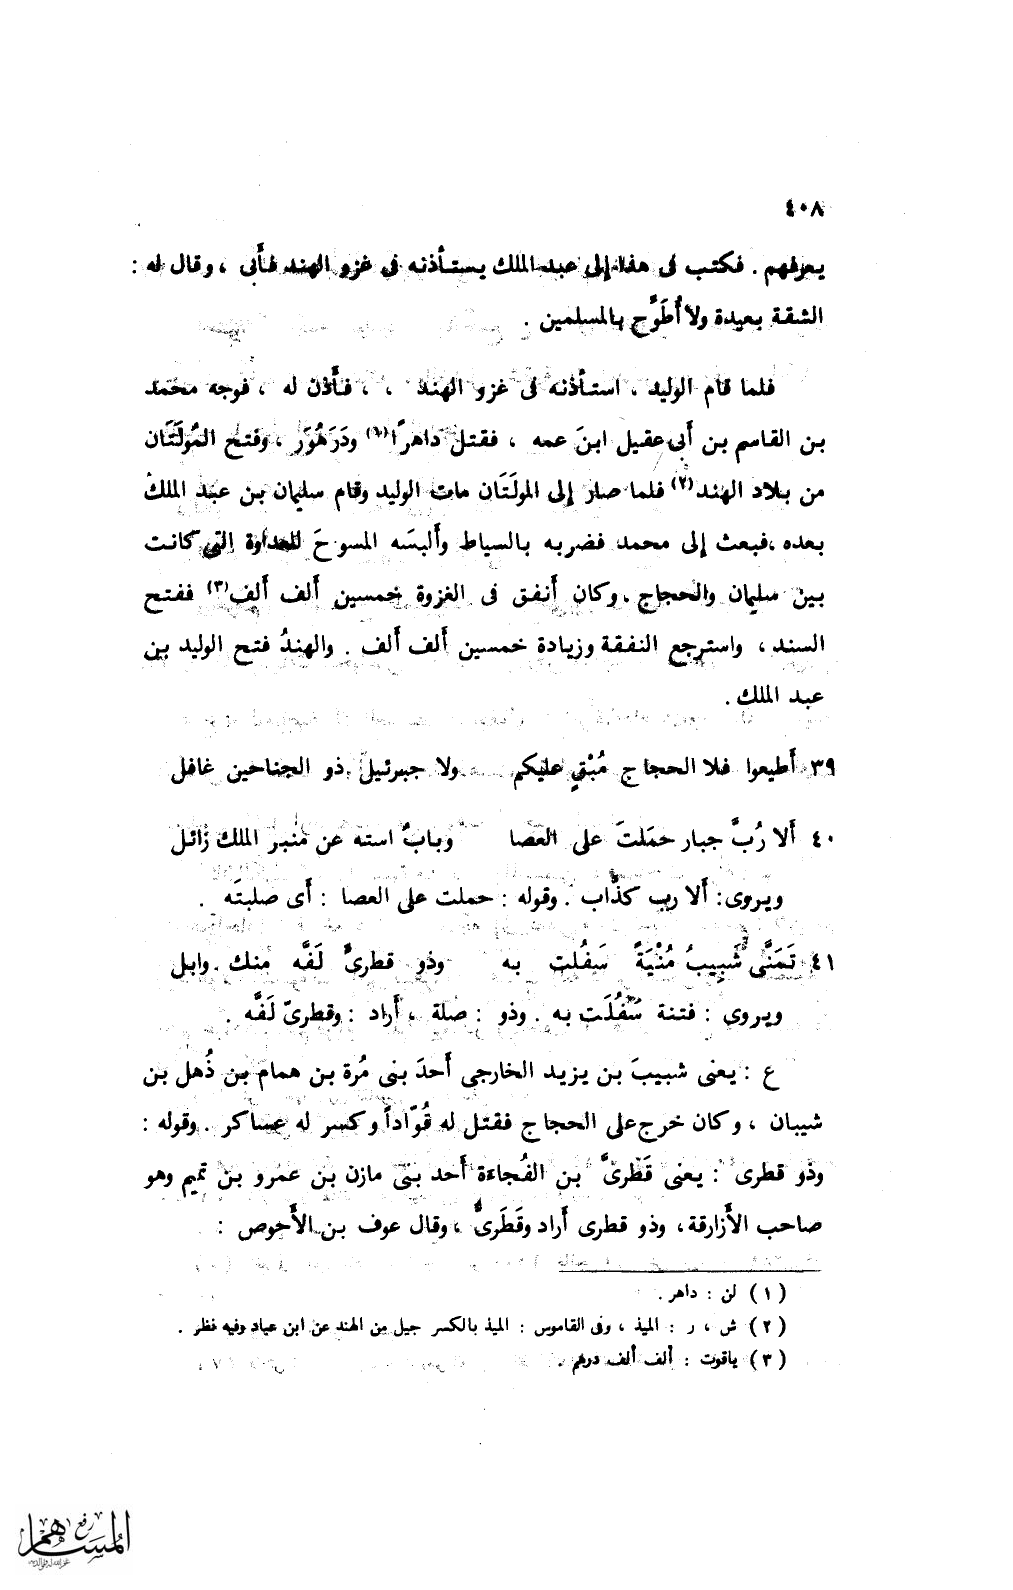 ٤٠٨
يعرفهم . فكتب فى هذا إلى عبد الملك يستأذنه فى غزو الهند فأبى ، وقال له :
الشقة بعيدة ولا أُطَوِّح بالمسلمين .
فلما قام الوليد ، استأذنه فى غزو الهند ، ، فأذن له ، فوجه محمد
بن القاسم بن أبى عقيل ابنَ عمه ، فقتل داهرًا(١) ودَرَهُوَر ، وفتح المُولَتَان
من بلاد الهند(٢) فلما صار إلى المولَتَان مات الوليد وقام سليمان بن عبد الملك
بعده ،فبعث إلى محمد فضربه بالسياط وألبسَه المسوحَ للعداوة التى كانت
بين سليمان والحجاج . وكان أنفق فى الغزوة خمسين ألف ألف(٣) ففتح
السند ، واسترجع النفقة وزيادة خمسين ألف ألف . والهندُ فتح الوليد بن
عبد الملك .
٣٩ أَطيعوا فلا الحجاج مُبْقٍ عليكم ولا جبرئيل ذو الجناحين غافل
٤٠ ألا رُبَّ جبار حمَلتَ على العصا وبابُ استه عن منبر الملك زائل
ويروى : ألا رب كذّاب . وقوله : حملت على العصا : أى صلبتَه .
٤١ تَمَنَّى شَبِيبُ مُنْيَةً سَفُلت به وذو قطرىٍّ لَفَّه منك وابل
ويروى : فتنة سَفُلَت به . وذو : صلة ، أراد : وقطرىّ لَفَّه .
ع : يعنى شبيبَ بن يزيد الخارجى أحدَ بنى مُرة بن همام بن ذُهل بن
شيبان ، وكان خرج على الحجاج فقتل له قُوّاداً وكسر له عساكر . وقوله :
وذو قطرى : يعنى قَطَرىَّ بن الفُجاءة أحد بنى مازن بن عمرو بن تميم وهو
صاحب الأزارقة ، وذو قطرى أراد وقَطَرىٌّ ، وقال عوف بن الأحوص :
( ١ ) لن : داهر .
( ٢ ) ش ، ر : الميذ ، وفى القاموس : الميذ بالكسر جيل من الهند عن ابن عباد وفيه نظر .
( ٣ ) ياقوت : ألف ألف درهم .
رفع
المساهم